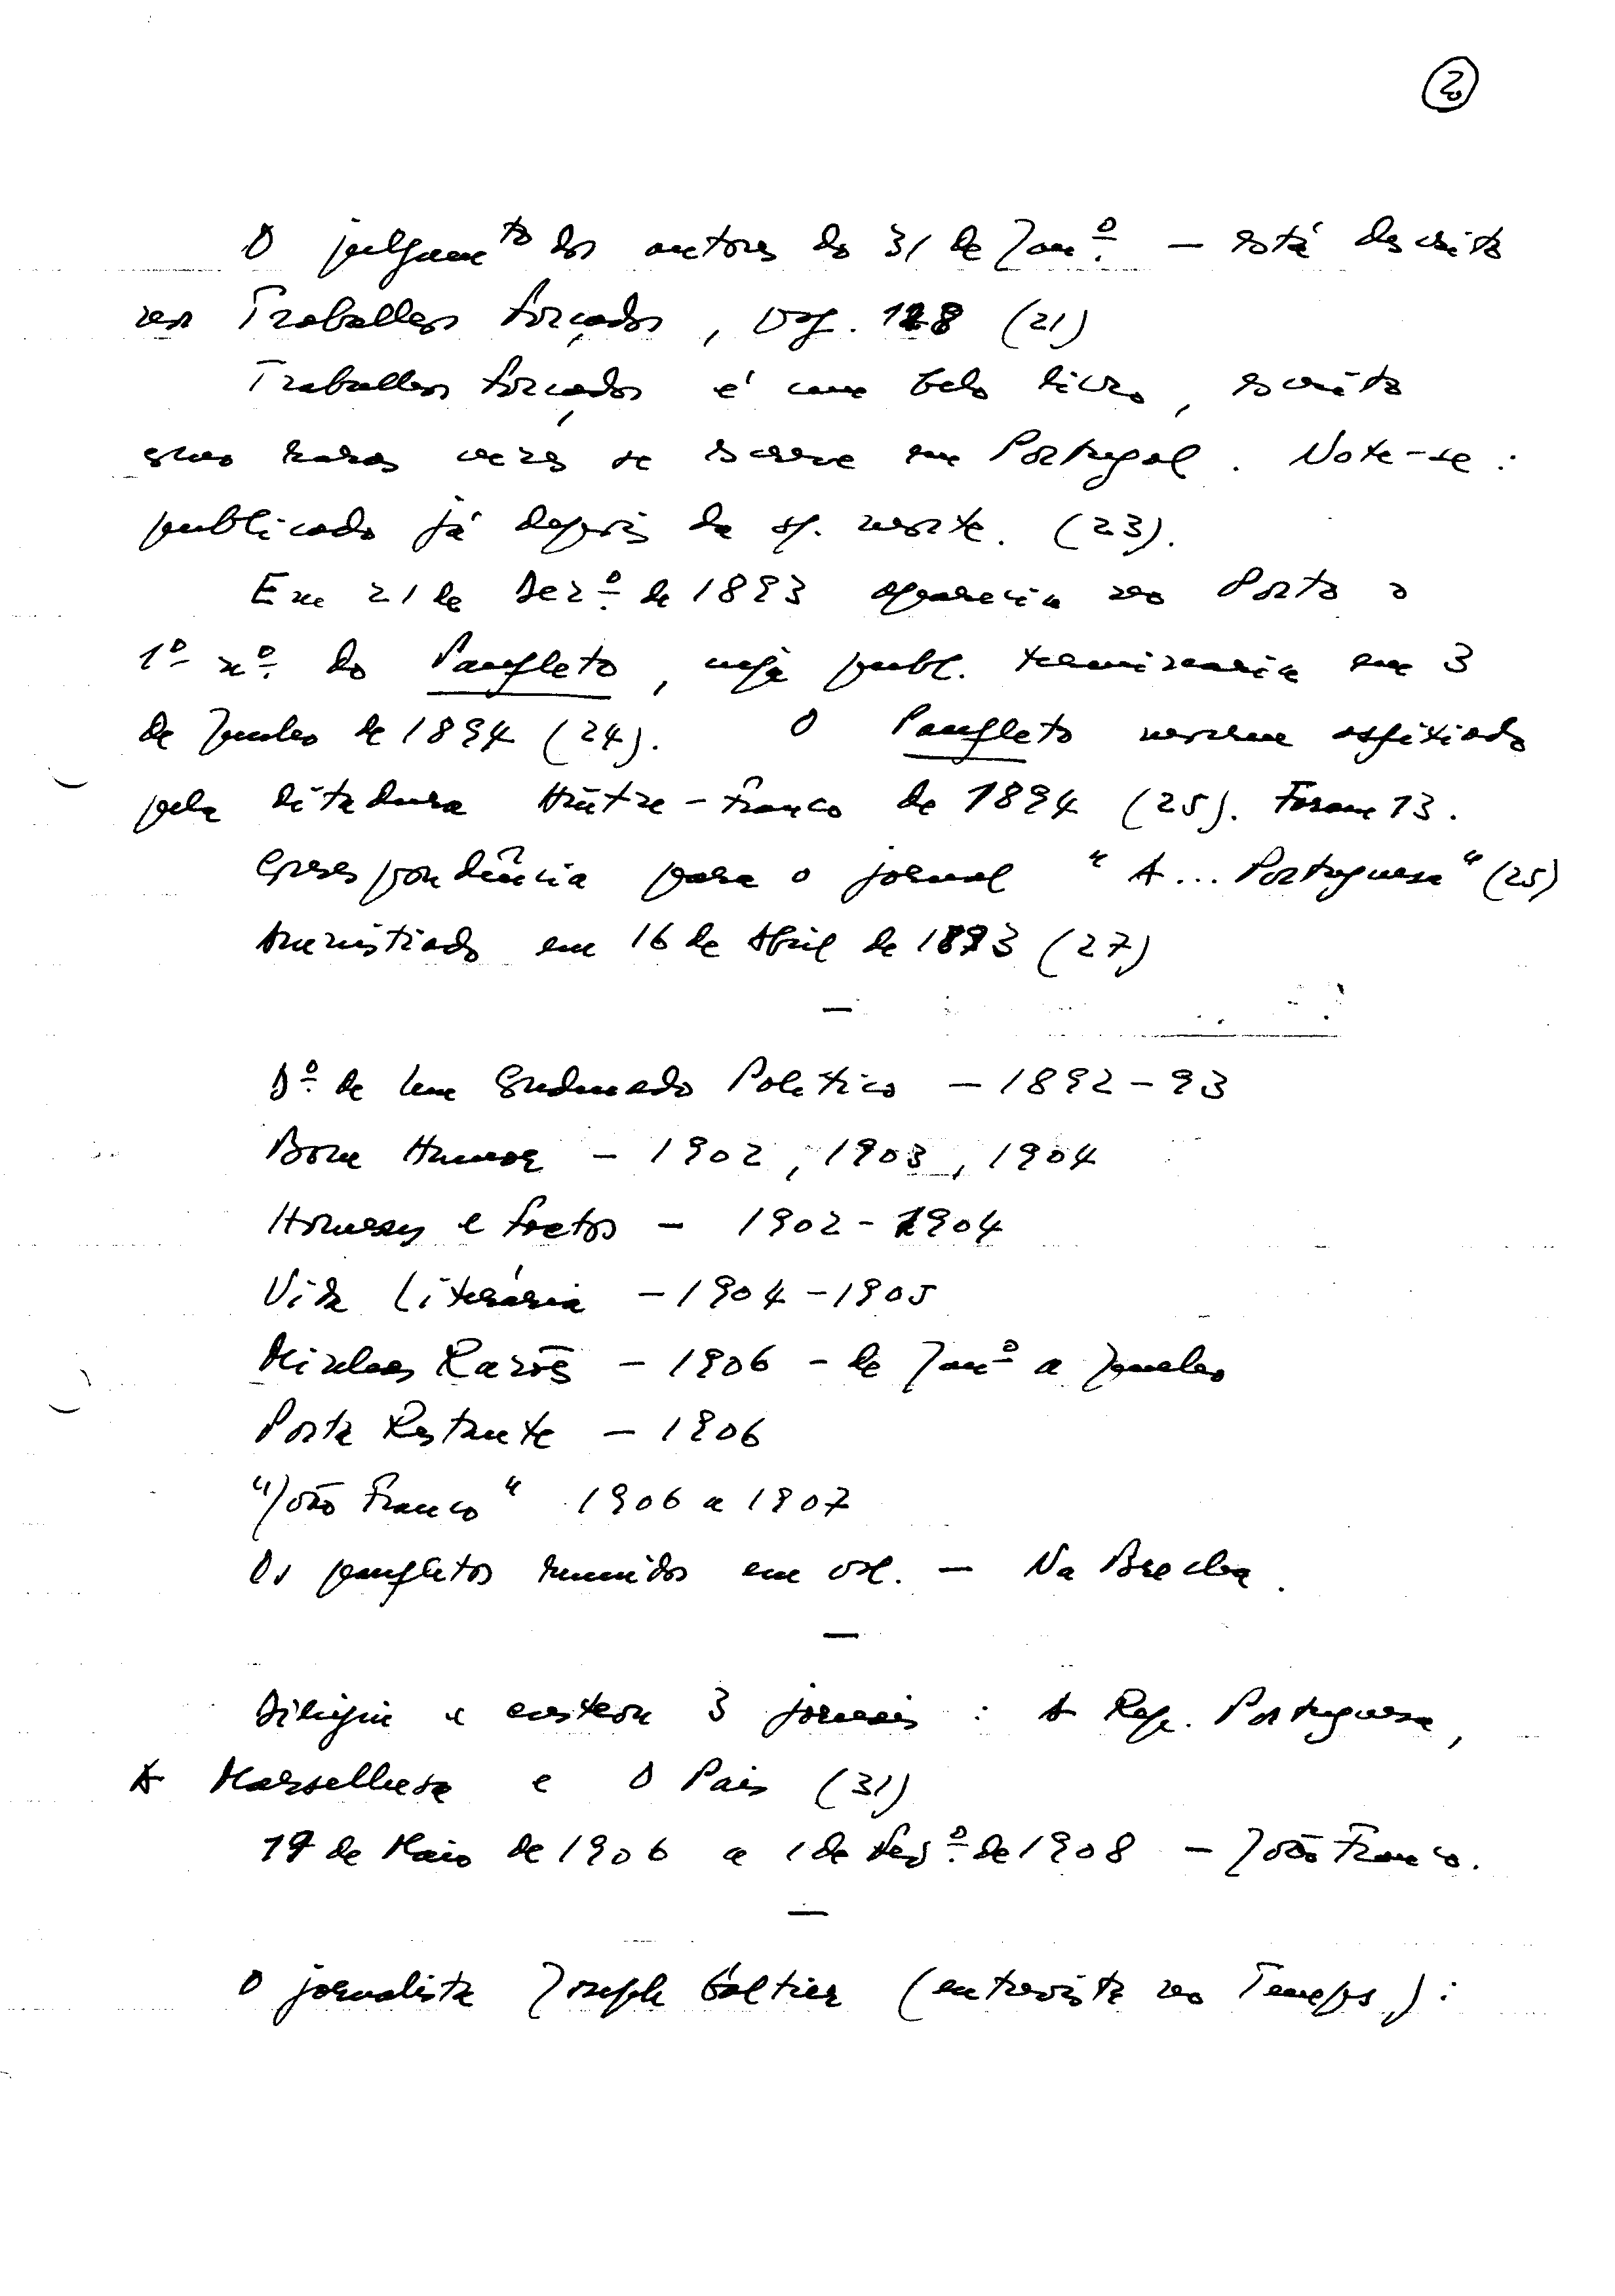 2
O julgamto dos autores do 31 de Janº. — está descrito
nos Trabalhos forçados, pag. 128 (21)
Trabalhos forçados é um belo livro, escrito
como raras vezes se escreve em Portugal. Note-se:
publicado já depois da sf. morte. (23).
Em 21 de Dezº. de 1893 aparecia no Porto o
1º nº. do Panfleto, cuja publ. terminaria em 3
de Junho de 1894 (24). O Panfleto morreu asfixiado
pela ditadura Hintze-Franco de 1894 (25). Foram 13.
Correspondência para o jornal "A... Portuguesa" (25)
Amnistiado em 16 de Abril de 1893 (27)
—
Dº. de um Condenado Político — 1892-93
Bom Humor — 1902, 1903, 1904
Homens e factos — 1902-1904
Vida Literária — 1904-1905
Minhas Razões — 1906 - de Janº a Junho
Posta Restante — 1906
"João Franco" 1906 a 1907
Os panfletos reunidos em vol. — Na Brecha.
—
Dirigiu e custeou 3 jornais: A Rep. Portuguesa,
A Marselhesa e O Pais (31)
19 de Maio de 1906 a 1 de Fevº. de 1908 — João Franco.
—
O jornalista Joseph Galtier (entrevista no Temps):